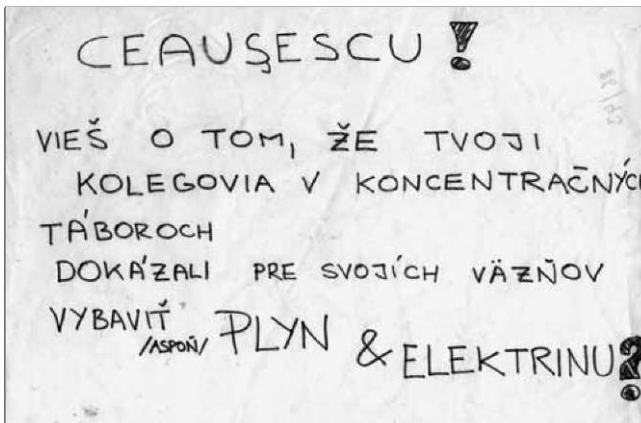 CEAUŞESCU !
VIEŠ O TOM, ŽE TVOJI
KOLEGOVIA V KONCENTRAČNÝC
TÁBOROCH
DOKÁZALI PRE SVOJÍCH VÄZŇOV
VYBAVIŤ /ASPOŇ/ PLYN & ELEKTRINU?